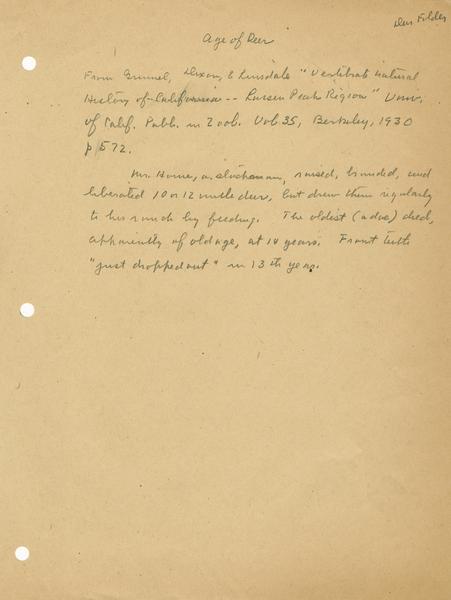 Deer Folder
Age of Deer
From Grinnel, Dixon, & Linsdale "Vertebrate natural
History of California -- Lassen Peak Region" Univ.
of Calif. Publ. in Zool. Vol 35, Berkeley, 1930
p 572.
Mr. Horne, a stockman, raised, branded, and
liberated 10 or 12 mule deer, but drew them regularly
to his ranch by feeding. The oldest (a doe) died,
apparently of old age, at 14 years. Front teeth
"just dropped out" in 13th year.